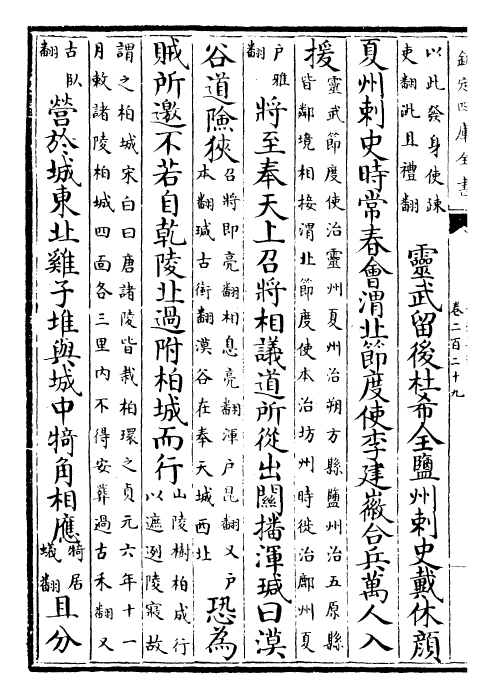 欽定四庫全書
卷二百二十九
以此發身使疎
吏翻泚且禮翻
靈武留後杜希全鹽州刺史戴休顔
夏州刺史時常春會渭北節度使李建徽合兵萬人入
援
靈武節度使治靈州夏州治朔方縣鹽州治五原縣
皆鄰境相接渭北節度使本治坊州時徙治鄜州夏
户雅
翻
將至奉天上召將相議道所從出關播渾瑊曰漠
谷道險狹
召將即亮翻相息亮翻渾户昆翻又户
本翻瑊古銜翻漠谷在奉天城西北
恐為
賊所邀不若自乾陵北過附柏城而行
山陵樹柏成行
以遮迾陵寢故
謂之柏城宋白曰唐諸陵皆栽柏環之貞元六年十一
月敕諸陵柏城四面各三里内不得安葬過古禾翻又
古臥
翻
營於城東北雞子堆與城中犄角相應
犄居
蟻翻
且分